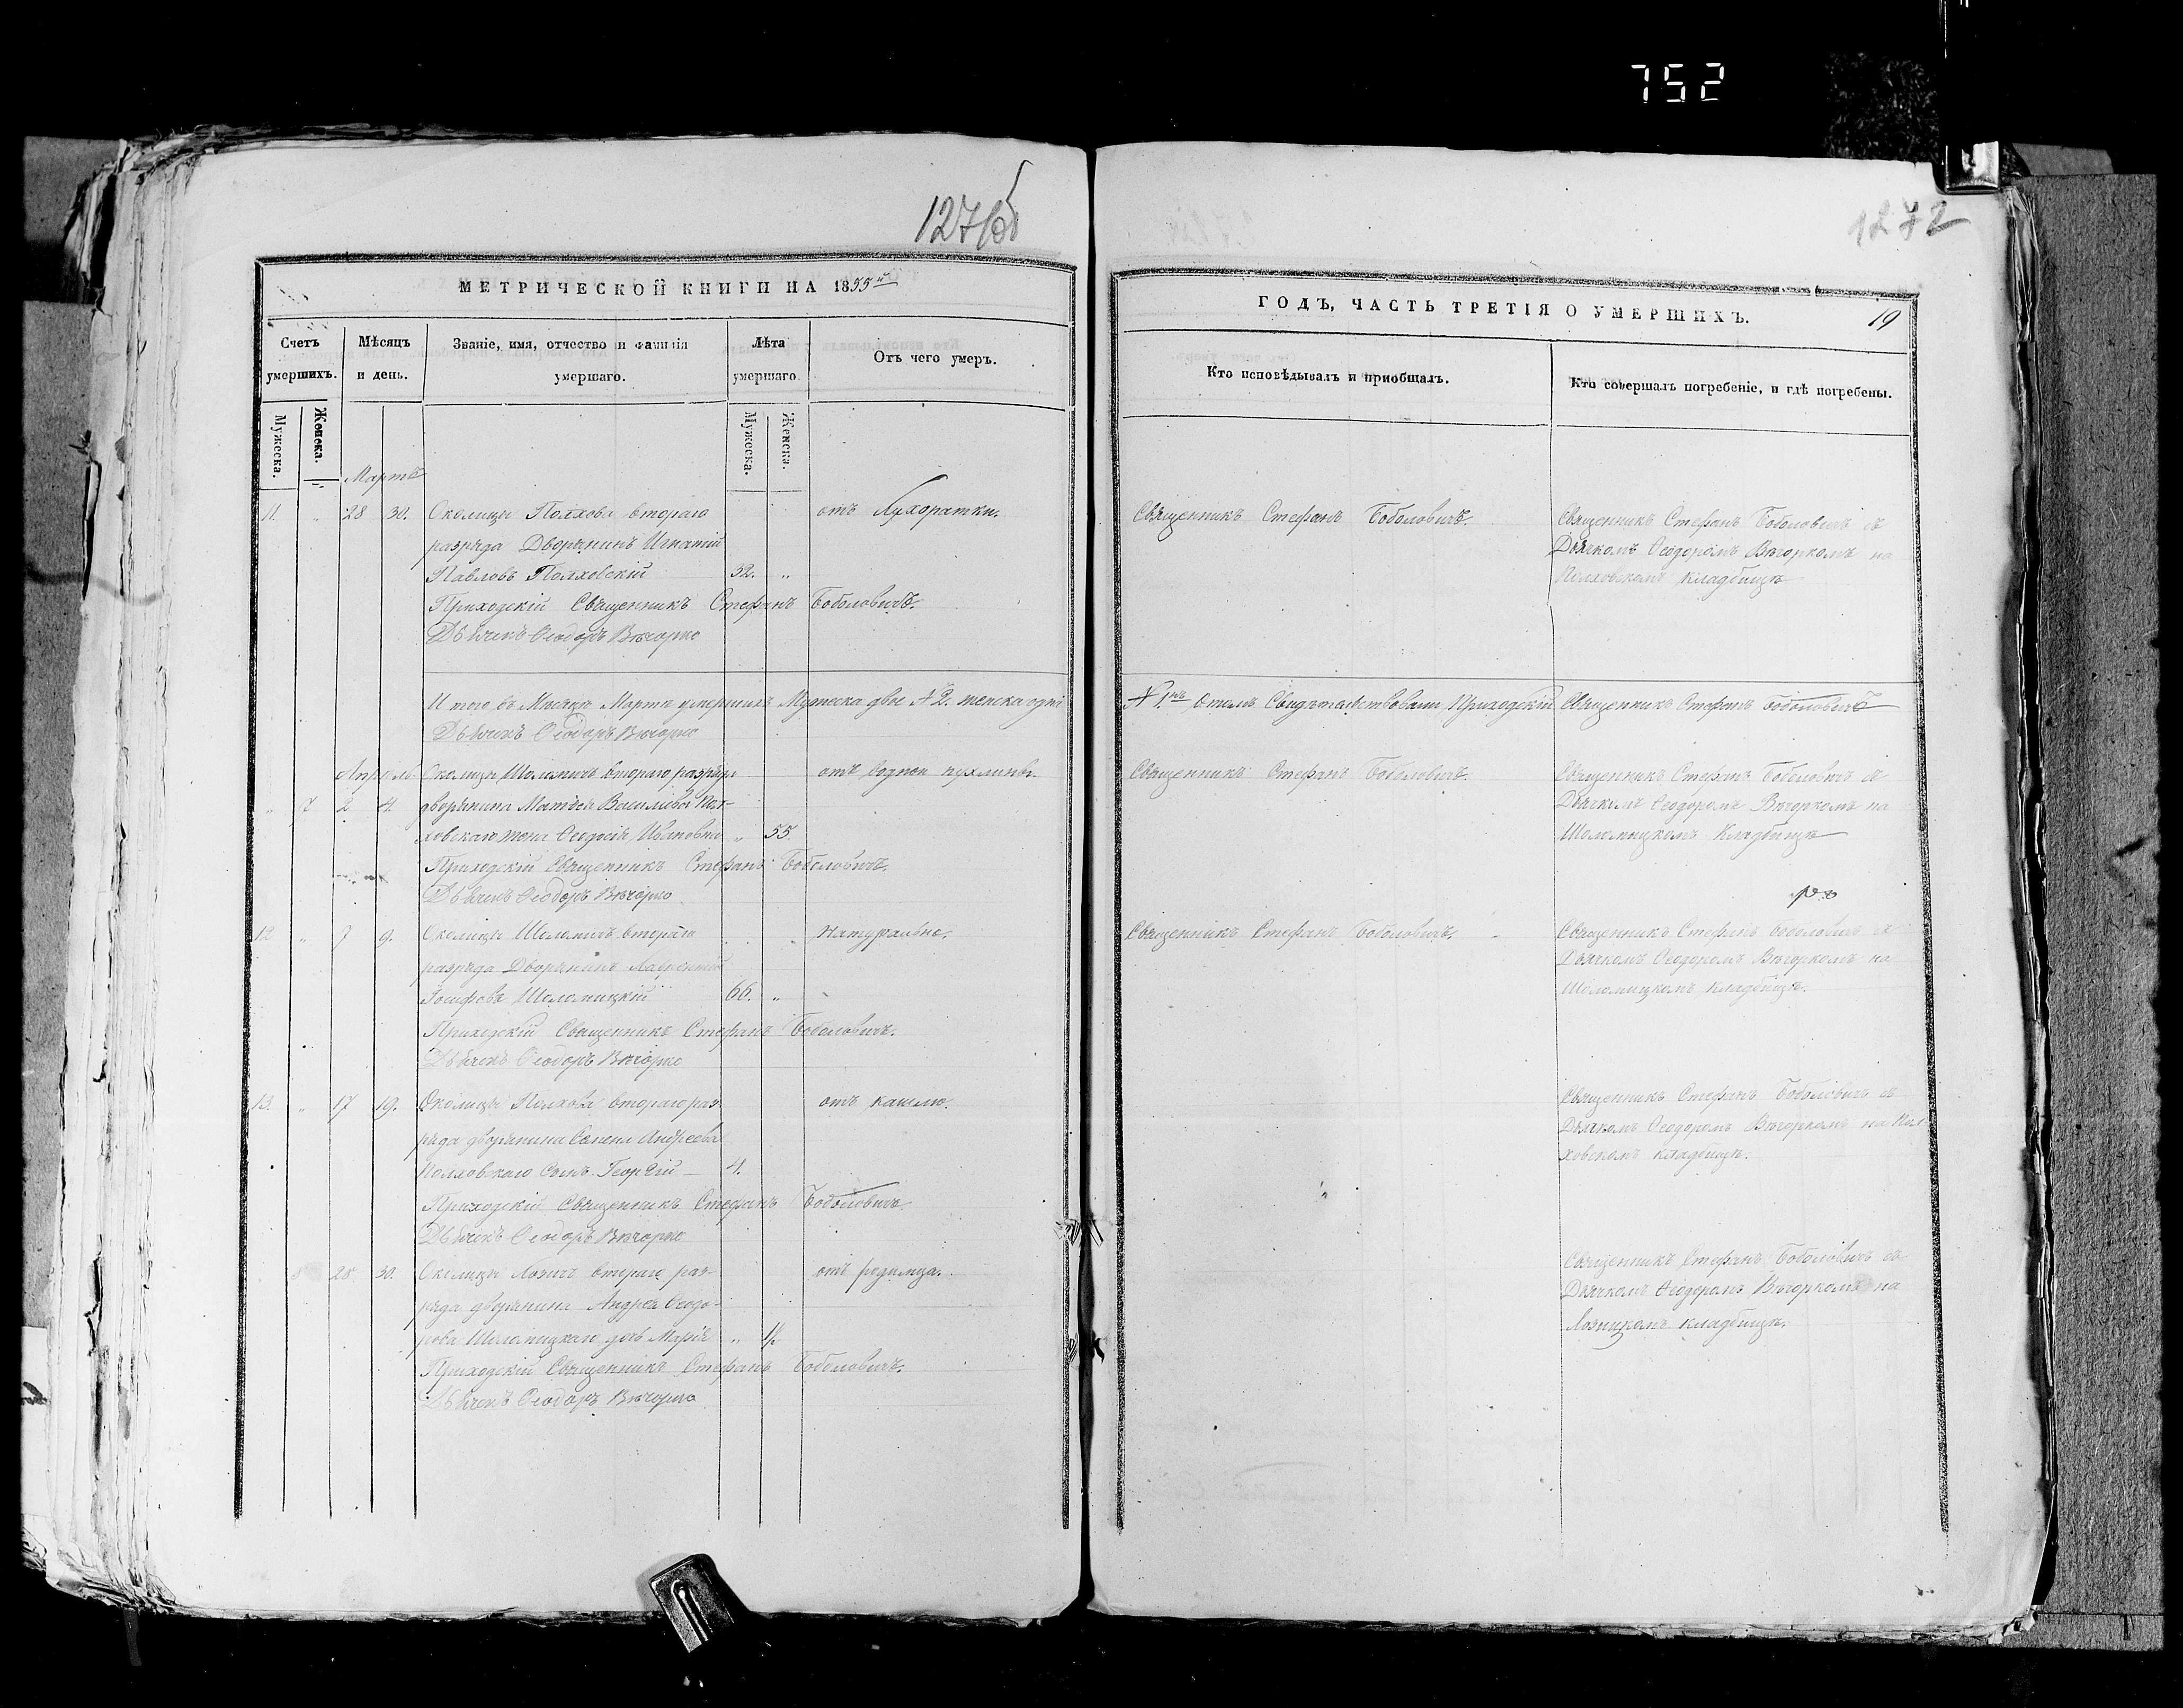 752
1271об
1272
МЕТРИЧЕСКОЙ КНИГИ НА 1855й
ГОДЪ, ЧАСТЬ ТРЕТІЯ О УМЕРШИХЪ.
19
Счетъ умершихъ.
Мѣсяцъ и день.
Званіе, имя, отчество и фамилія умершаго.
Лѣта умершаго.
Отъ чего умеръ.
Кто исповѣдывалъ и приобщалъ.
Кто совершалъ погребеніе, и гдѣ погребены.
Мужеска.
Женска.
Мужеска.
Женска.
Мартъ
11. „ 28 30. Околицы Полхова втораго отъ Сухоратки. Священникъ Стефанъ Боболовичъ. Священникъ Стефанъ Боболовичъ съ
разряда Дворянинъ Игнатій Дьячкомъ Ѳеодоромъ Вѣчоркомъ на
Павловъ Полховскій 32. „ Полховскомъ кладбищѣ
Приходскій Священникъ Стефанъ Боболовичъ.
Дьячекъ Ѳеодоръ Вѣчорко
И того въ Мѣсяцѣ Мартѣ умершихъ Мужеска двое № 2. женска одна № 1. Священникъ Стефанъ Боболовичъ
Дьячекъ Ѳеодоръ Вѣчорко
Апрель Околицы Шоломичъ втораго разряда отъ водной пухлины. Священникъ Стефанъ Боболовичъ. Священникъ Стефанъ Боболовичъ съ
„ 7 2 4. дворянина Матвея Васильева Пол- Дьячкомъ Ѳеодоромъ Вѣчоркомъ на
ховскаго жена Ѳеодосія Ивановна „ 55 Шоломицкомъ Кладбищѣ
Приходскій Священникъ Стефанъ Боболовичъ.
Дьячекъ Ѳеодоръ Вѣчорко
12 „ 7 9. Околицы Шоломичъ втораго Натурально. Священникъ Стефанъ Боболовичъ. Священникъ Стефанъ Боболовичъ съ
разряда Дворянинъ Лаврентій Дьячкомъ Ѳеодоромъ Вѣчоркомъ на
Іосифовъ Шоломицкій 66. „ Шоломицкомъ кладбищѣ.
Приходскій Священникъ Стефанъ Боболовичъ.
Дьячекъ Ѳеодоръ Вѣчорко
13. „ 17 19. Околицы Полхова втораго раз- отъ кашлю. Священникъ Стефанъ Боболовичъ съ
ряда дворянина Андреева Дьячкомъ Ѳеодоромъ Вѣчоркомъ на Пол
Полховскаго сынъ Георгій 4. ховскомъ кладбищѣ.
Приходскій Священникъ Стефанъ Боболовичъ.
Дьячекъ Ѳеодоръ Вѣчорко
8 28. 30. Околицы Лозичъ втораго раз- отъ родимца. Священникъ Стефанъ Боболовичъ съ
ряда дворянина Андрея Ѳеодо- Дьячкомъ Ѳеодоромъ Вѣчоркомъ на
рова Шоломицкаго дочь Марія „ Лозицкомъ кладбищѣ.
Приходскій Священникъ Стефанъ Боболовичъ.
Дьячекъ Ѳеодоръ Вѣчорко